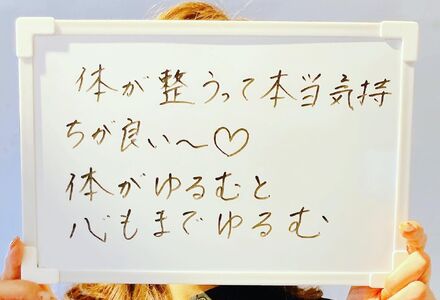 体が整うって本当気持
ちが良い〜♡
体がゆるむと
心もまでゆるむ